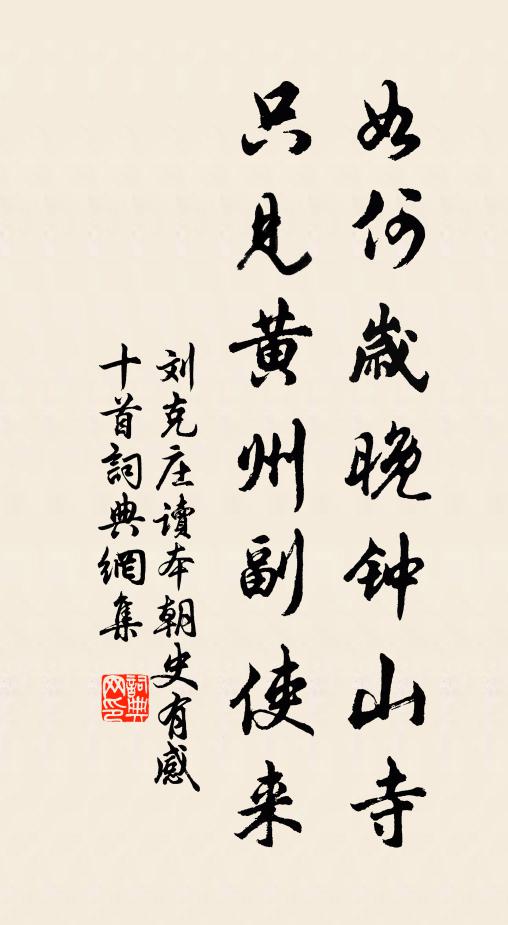 如何嵗晚钟山寺
只见黄州副使来
刘克庄讀本朝史有感
十首詞典網集
詞典网印